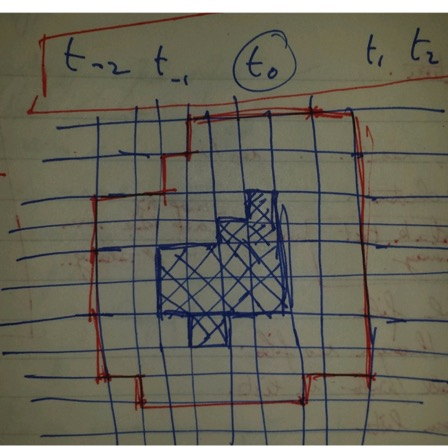 t-2 t-1 t0 t1 t2